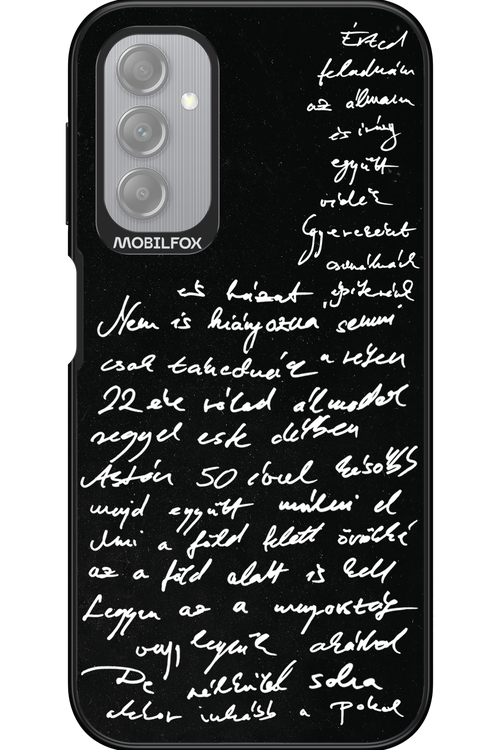 MOBILFOX
Érted
feladnám
az álmam
és irány
együtt
vidék
Gyereket
csinálnák
és házat építenék
Nem is hiányozna semmi
csak takednák a réten
22 éve rólad álmodok
reggel este délben
Aztán 50 évvel később
majd együtt múlni el
Ami a föld felett örökké
az a föld alatt is kell
Legyen az a mennyország
vagy legyünk akárhol
De nélküled soha
akkor inkább a pokol